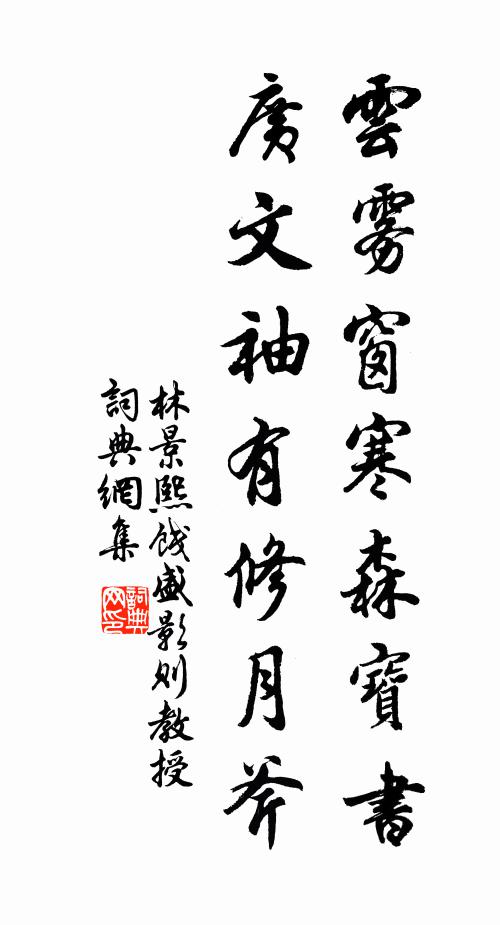 雲霧窗寒森寶書
廣文袖有修月斧
林景熙餞盛景則教授
詞典網集
詞典网印